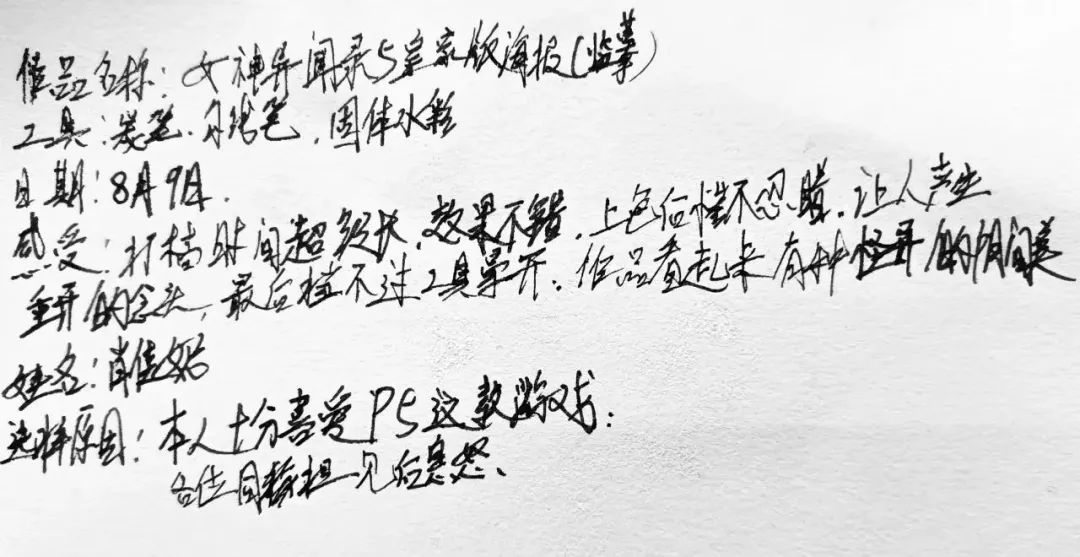 作品名称：女神异闻录5皇家版海报(临摹)
工具：炭笔、勾线笔、固体水彩
日期：8月9日.
感受：打稿时间超级长，效果不错，上色后惨不忍睹，让人产生
重开的念头，最后挡不过工具差异。作品看起来有种怪异的美
姓名：肖佳
选择原因：本人十分喜爱P5这款游戏；
各位同担见后息怒、